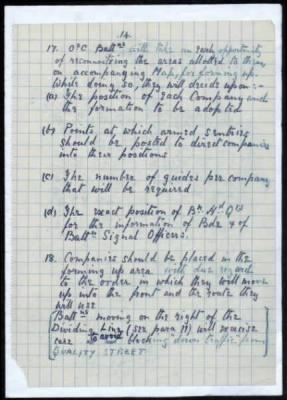 14.
17. O's C Battns will take an early opportunity
of reconnoitring the areas allotted to them
on accompanying Map, for forming up.
Whilst doing so, they will decide upon:-
(a) The position of each Company and
the formation to be adopted
(b) Points at which armed sentries
should be posted to direct companies
into their positions
(c) The number of guides per company
that will be required
(d) The exact position of Bn Hd Qrs
for the information of Bde & of
Battn Signal Officers.
18. Companies should be placed in the
forming up area with due regard
to the order in which they will move
up into the front and the route they
will use
[Battns moving on the right of the
Dividing Line (see para 11) will exercise
care to avoid blocking down traffic from
QUALITY STREET]